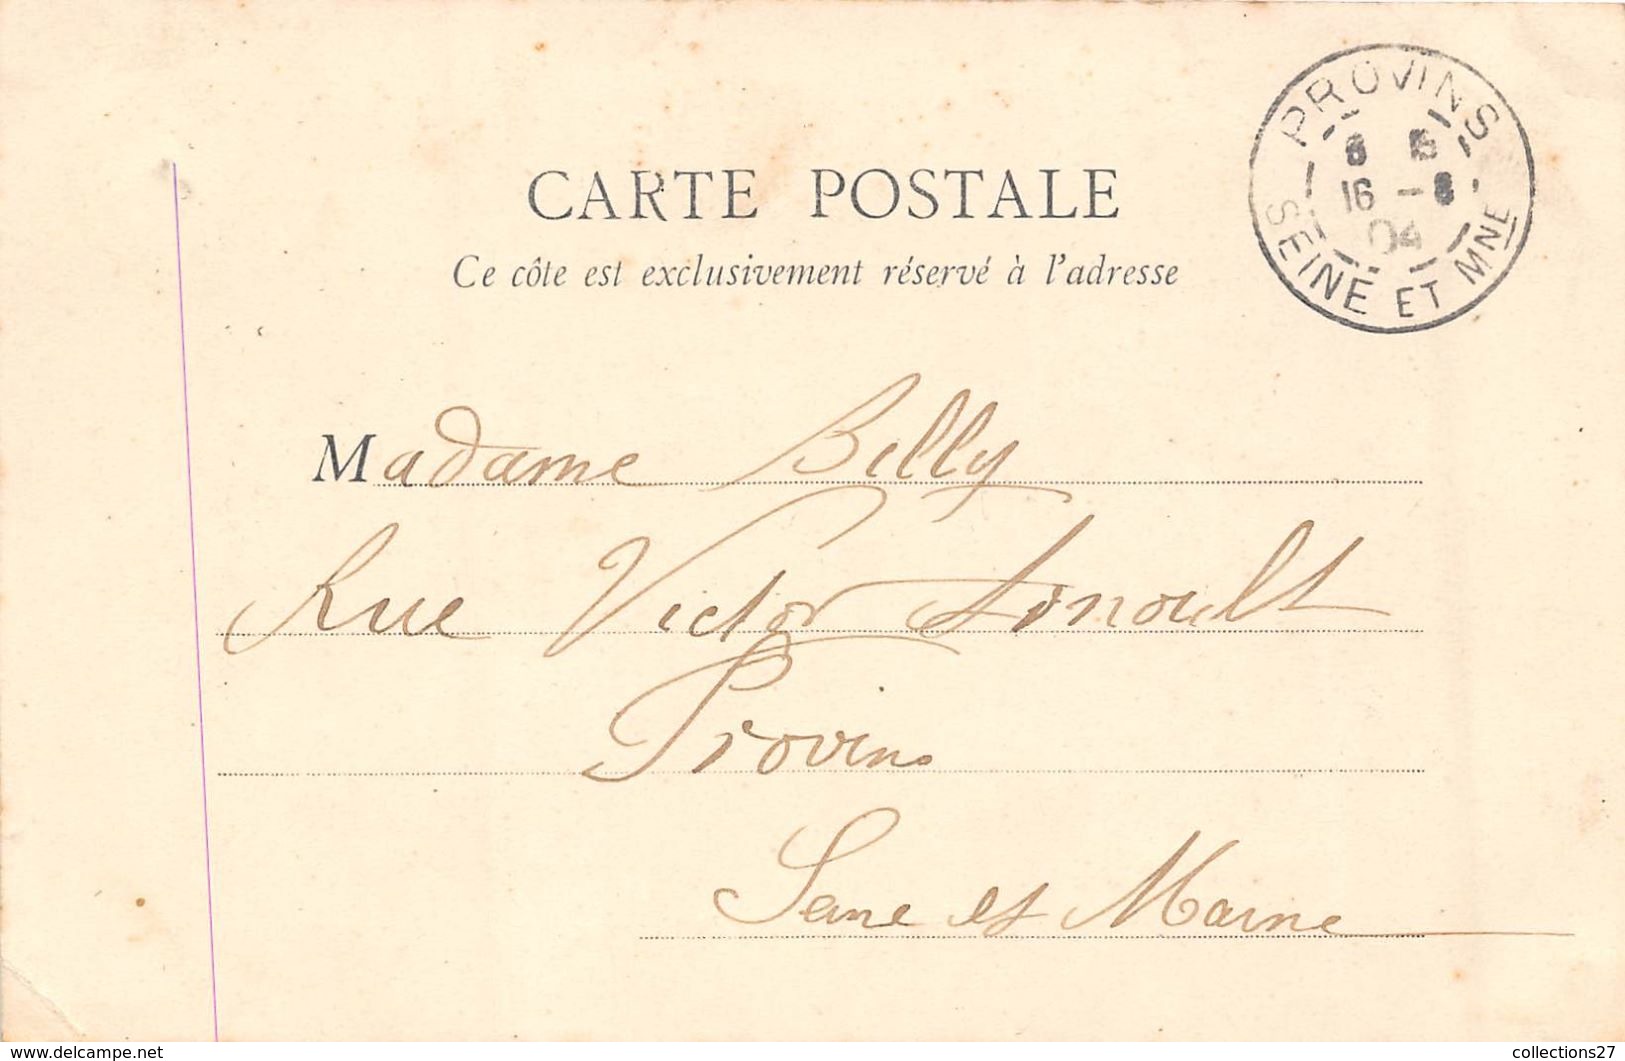 PROVINS
16 - 8
04
SEINE ET MNE
CARTE POSTALE
Ce côte est exclusivement réservé à l'adresse
Madame Billy
Rue Victor Arnoult
Provins
Seine et Marne
www.delcampe.net
collections27